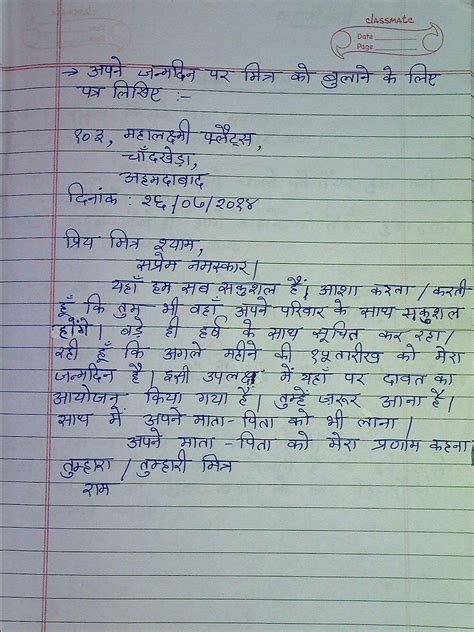 classmate
Date
Page
→ अपने जन्मदिन पर मित्र को बुलाने के लिए
पत्र लिखिए :-
१०२, महालक्ष्मी फ्लैट्स,
चाँदखेड़ा,
अहमदाबाद
दिनांक : २६/०७/२०१४
प्रिय मित्र श्याम,
सप्रेम नमस्कार।
यहाँ हम सब सकुशल हैं। आशा करता / करती
हूँ कि तुम भी वहाँ अपने परिवार के साथ सकुशल
होंगे। बड़े ही हर्ष के साथ सूचित कर रहा/
रही हूँ कि अगले महीने की १५ तारीख को मेरा
जन्मदिन है। इसी उपलक्ष में यहाँ पर दावत का
आयोजन किया गया है। तुम्हें जरूर आना है।
साथ में अपने माता-पिता को भी लाना।
अपने माता-पिता को मेरा प्रणाम कहना
तुम्हारा / तुम्हारी मित्र
राम